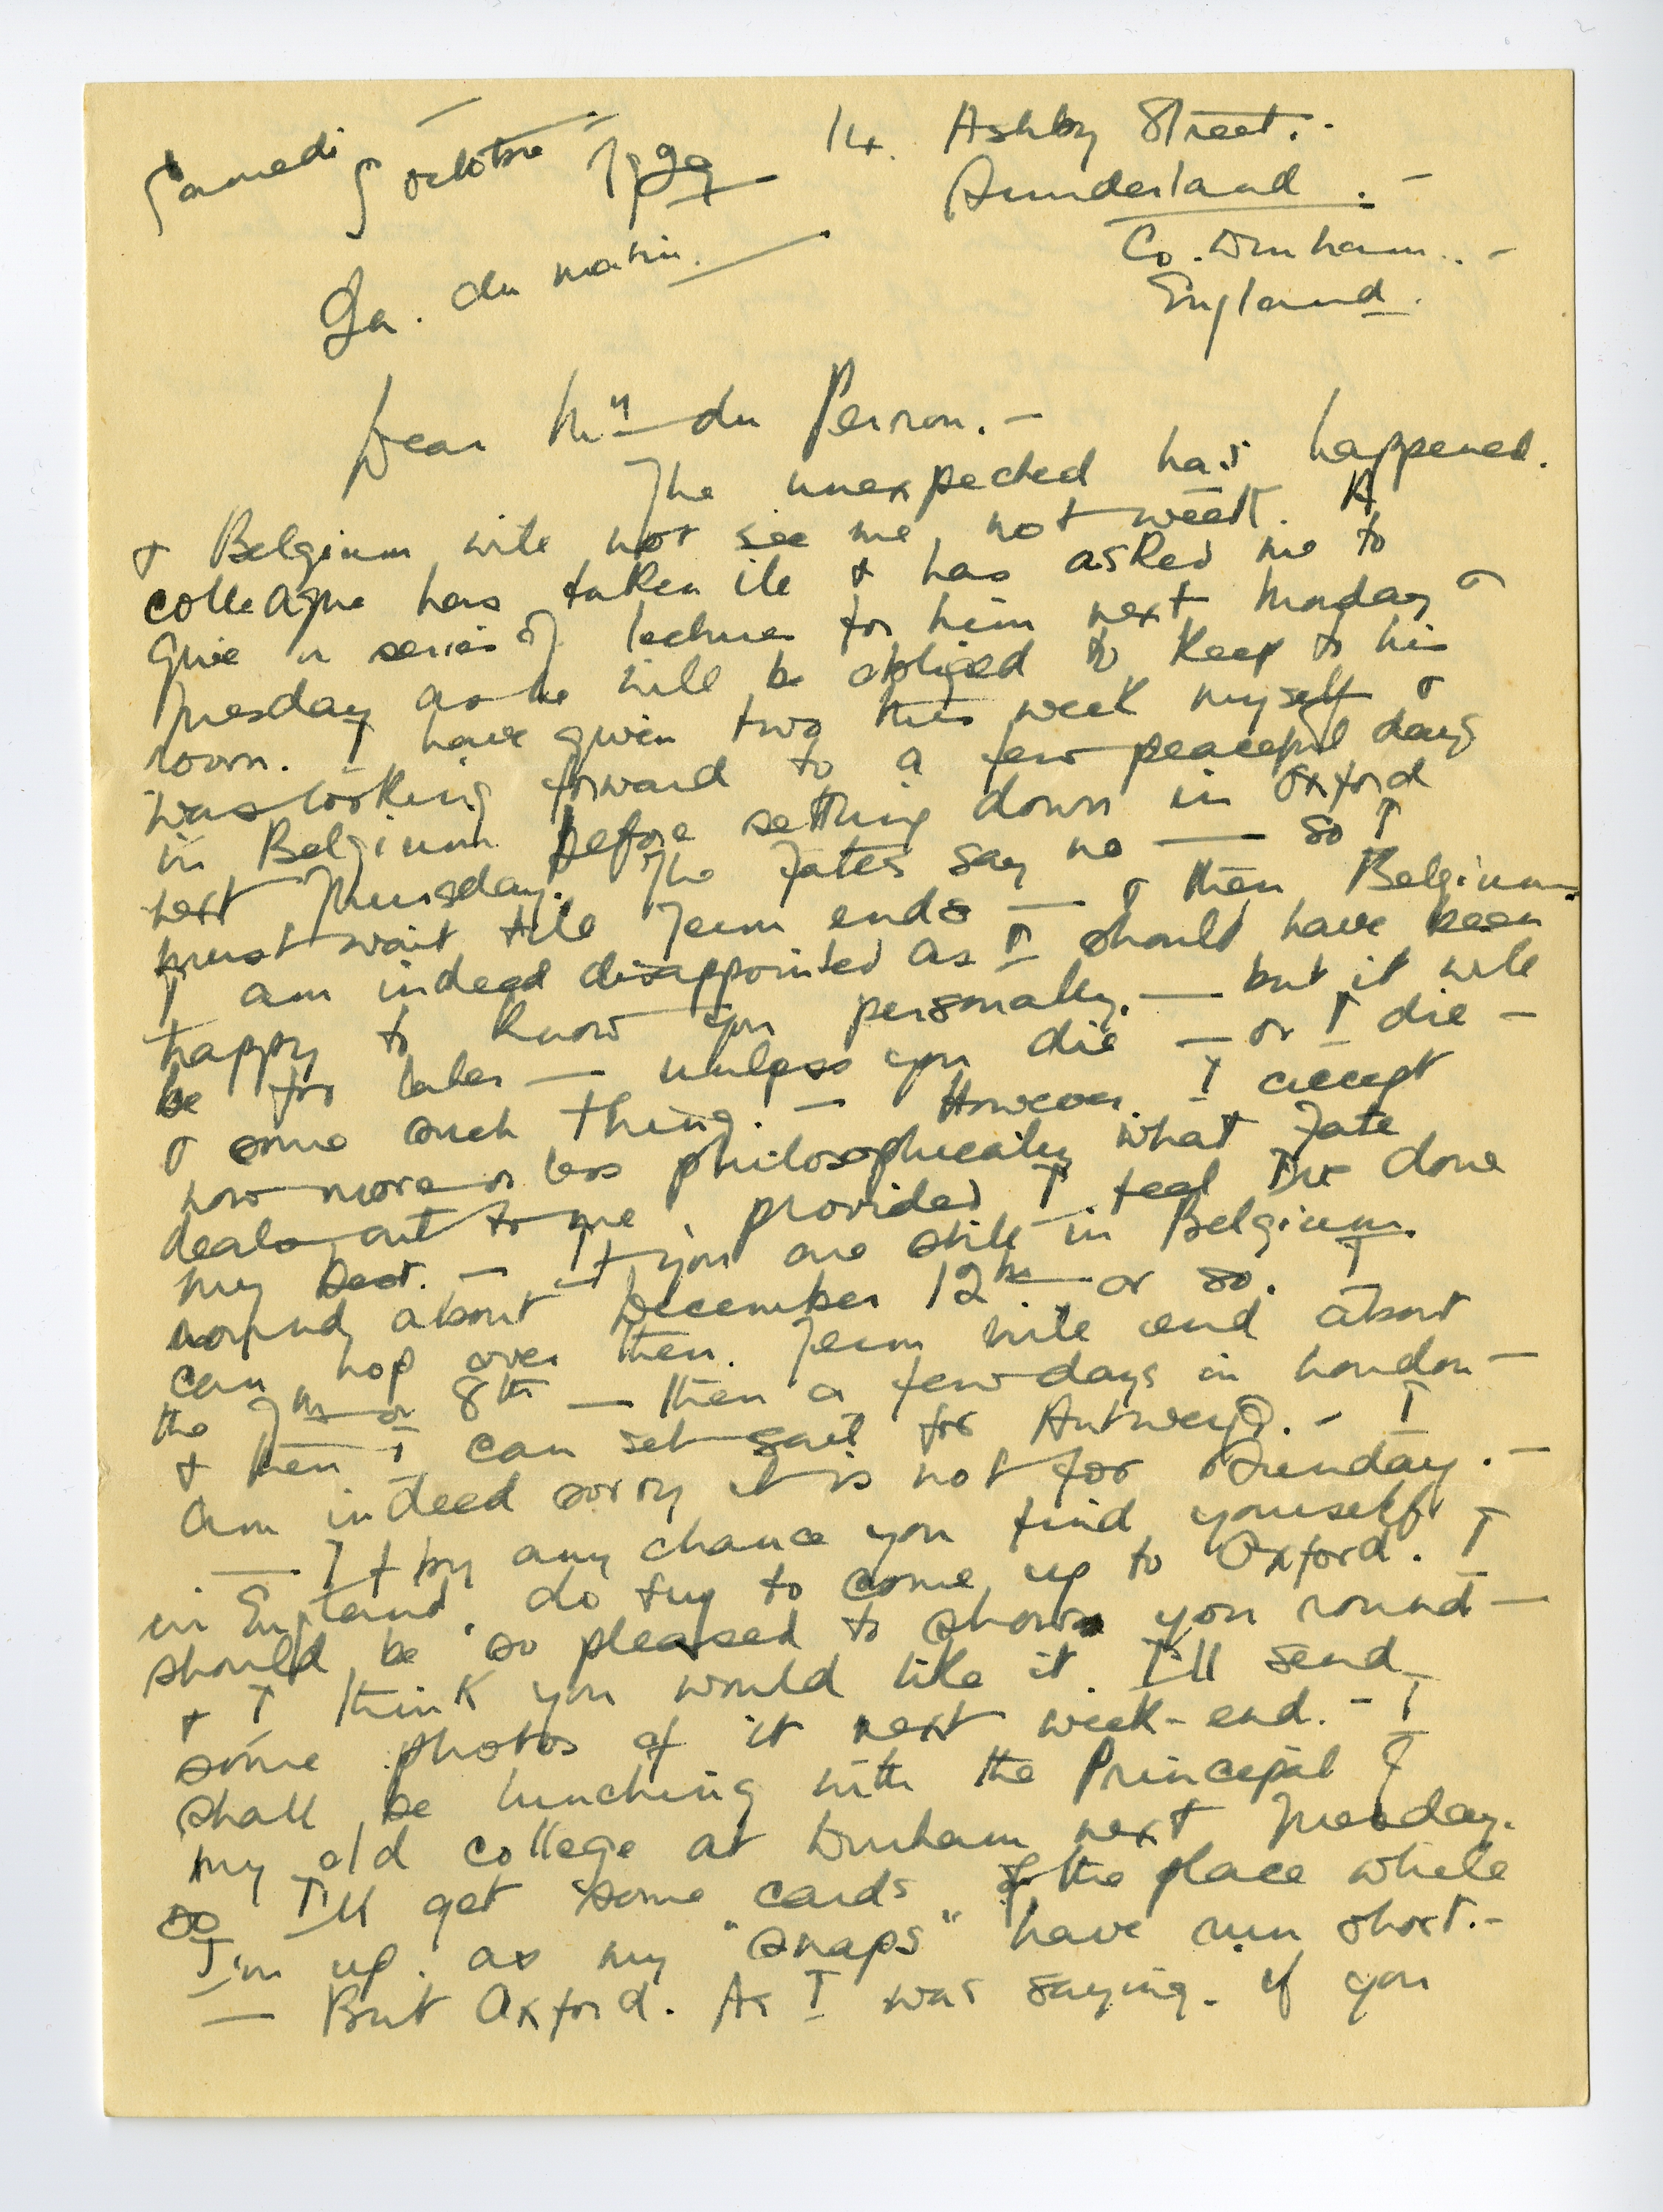 Samedi 5 octobre 1929
14. Ashby Street.
Sunderland.
Co. Durham.
England.
9h. du matin.
Dear Mr du Perron. —
The unexpected has happened.
& Belgium will not see me, not week. A
colleague has taken ill & has asked me to
give a series of lectures for him next Monday &
Tuesday as he will be obliged to keep to his
room. I have given two this week myself &
was looking forward to a few peaceful days
in Belgium before settling down in Oxford
next Thursday. The Fates say no — so I
must wait till Term ends — & then Belgium.
I am indeed disappointed as I should have been
happy to know you personally. — but it will
be for later — unless you die — or I die —
& some such thing. — However I accept
now more or less philosophically what Fate
deals out to me, provided I feel I've done
my best. — If you are still in Belgium
round about December 12th or so. I
can hop over then. Term will end about
the 7th or 8th — then a few days in London —
& then I can set sail for Antwerp. — I
am indeed sorry it is not for Sunday. —
— If by any chance you find yourself
in England, do try to come up to Oxford. I
should be so pleased to show you round —
& I think you would like it. I'll send
some photos of it next week-end. — I
shall be lunching with the Principal of
my old college at Durham next Tuesday.
so I'll get some cards of the place while
I'm up. as my "snaps" have run short. —
— But Oxford. As I was saying. if you